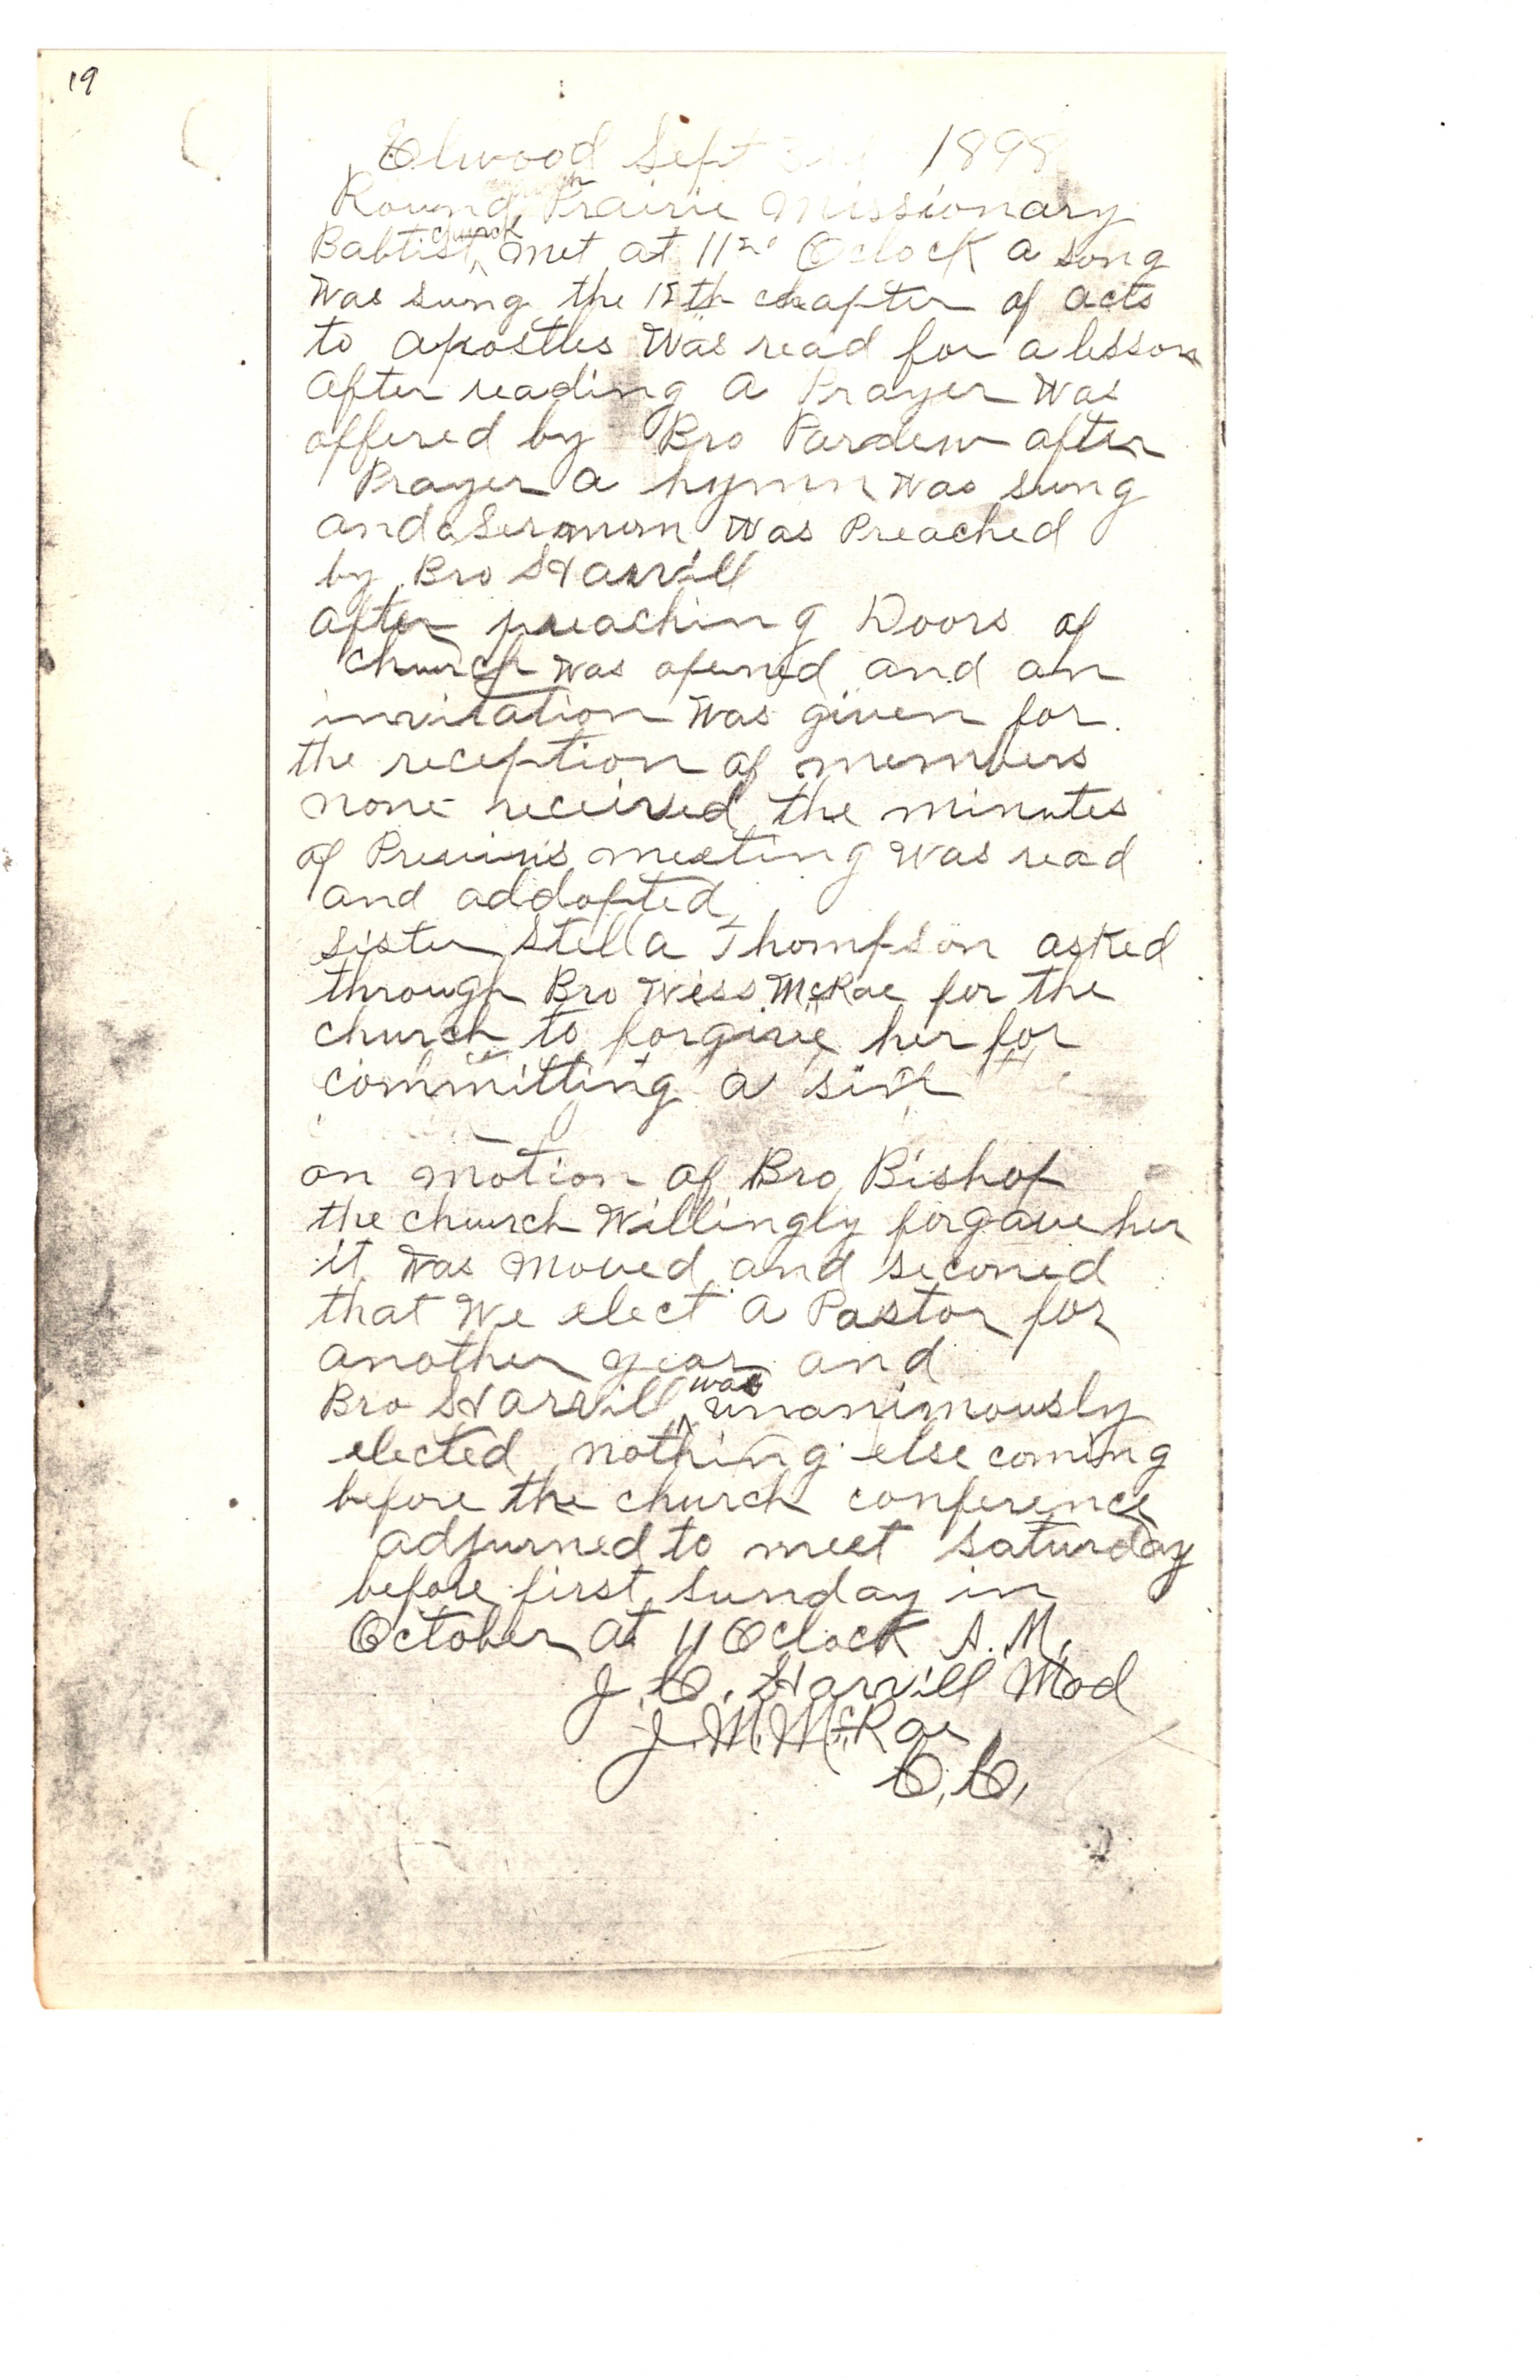 19
Elwood Sept 1898
Round Prairie Missionary
Babtist church met at 11 Oclock a song
Was sung the chapter of acts
to apostles Was read for a lesson
after reading a Prayer Was
offered by Bro Pardew after
Prayer a hymn Was sung
and a Sermon Was Preached
by Bro Harvill
after preaching Doors of
church Was opened and an
invitation Was given for
the reception of members
none received the minutes
of Previus meeting Was read
and addopted
sister Stella Thompson asked
through Bro Wess McRae for the
church to forgive her for
committing a sin
on motion of Bro Bishop
the church Willingly forgave her
it Was moved and seconed
that We elect a Pastor for
another year and
Bro Harvill was unanimously
elected nothing else coming
before the church conference
adjurned to meet Saturday
before first Sunday in
October at 11 Oclock A.M.
J. C. Harvill Mod
J. M. McRae
C. C.